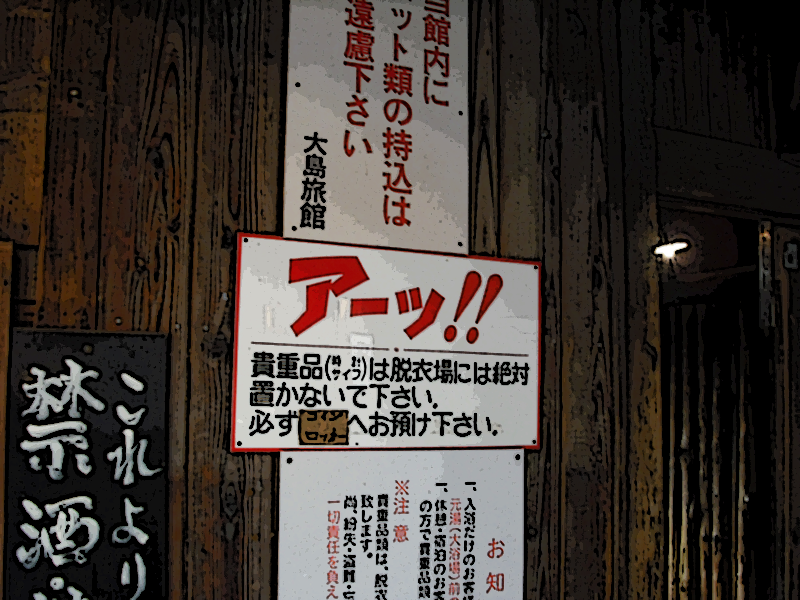 当館内に
ペット類の持込は
遠慮下さい
大島旅館
アーッ!!
貴重品(サイフ)は脱衣場には絶対
置かないで下さい。
必ずコインロッカーへお預け下さい。
これより
禁酒
お知
一、入浴だけのお客様
元湯(大浴場)前の
一、休憩・宿泊のお客
の方で貴重品類
※注意
貴重品類は、脱衣
致します。
尚、紛失・盗難・
一切責任を負え